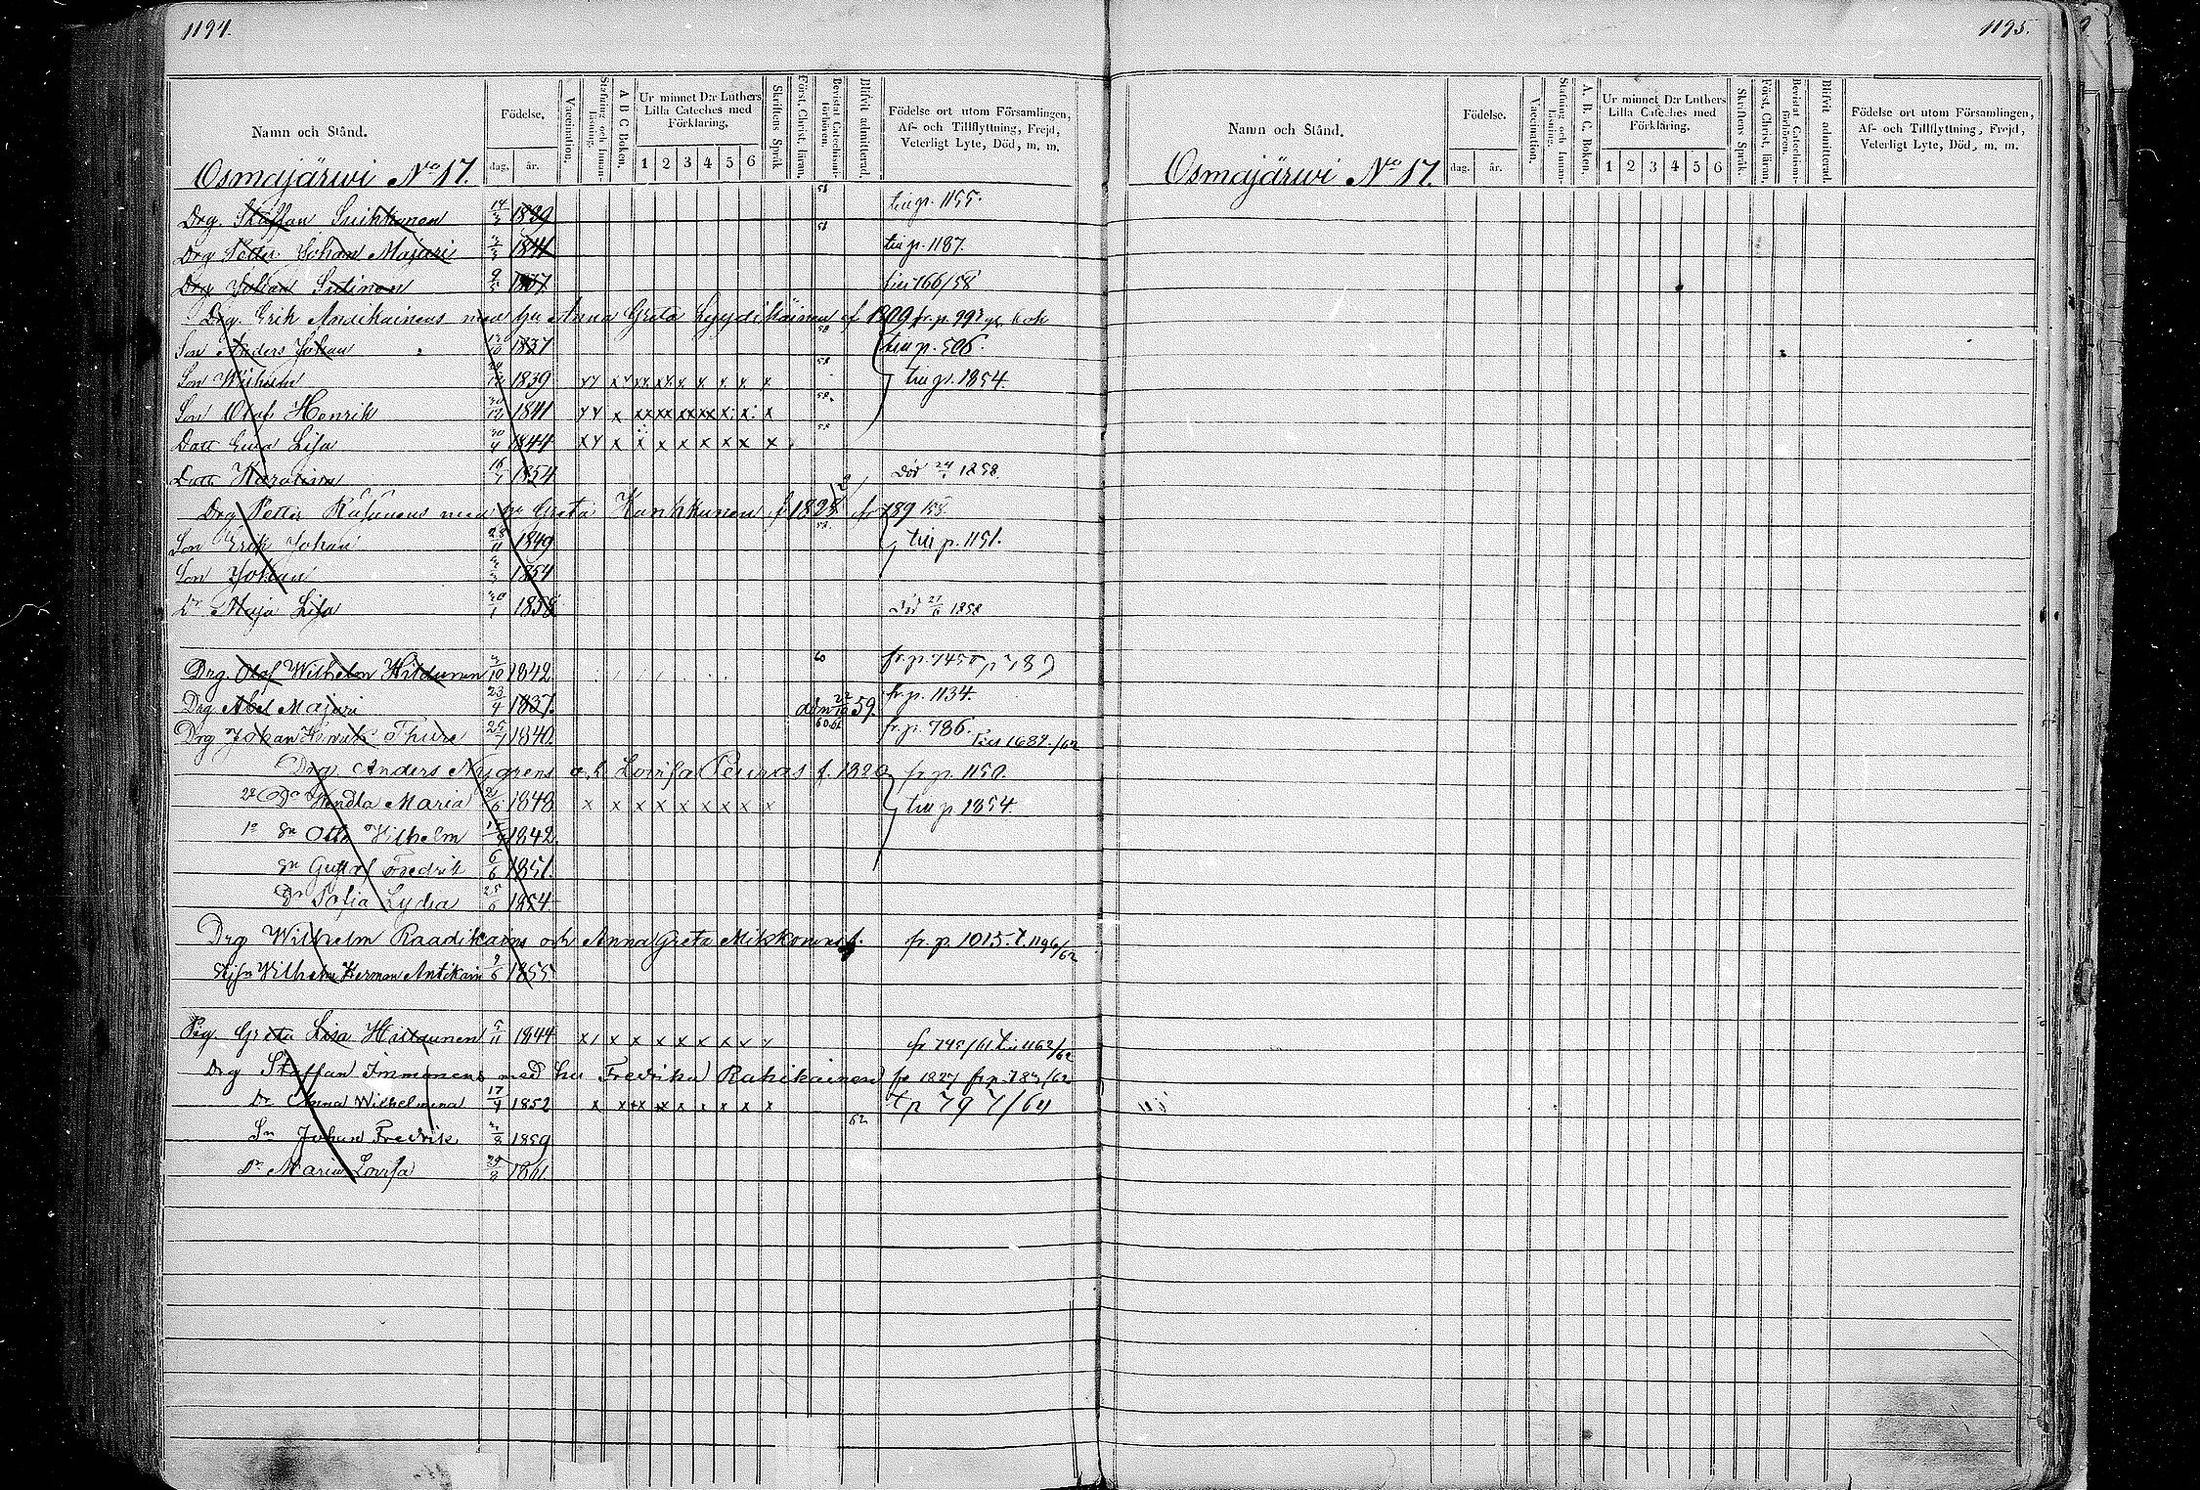 1194.
Namn och Stånd.
Födelse.
dag. år.
Vaccination.
Stafning och Innan-läsning.
A B C Boken.
Ur minnet D:r Luthers Lilla Cateches med Förklaring.
1 2 3 4 5 6
Skriftens Språk
Först. Christ. läran.
Bevistat Catechismi-förhören.
Blifvit admitterad.
Födelse ort utom Församlingen, Af- och Tillflyttning, Frejd, Veterligt Lyte, Död, m. m.
Osmajärwi No 17.
Drg. Staffan 14/3 1839 58 till p. 1155.
Drg Petter Johan Majari 1841 58 till p. 1187.
Drg Johan 9/3 1837 till 166/58
Drg. Erik Antikainens med hu Anna Greta Lyydikäinen f 1809 fr. p. 997
Son Anders Johan 1837 58 till p. 506.
Son Wilhelm 1839 xx xx xx xx x x x x x 58 till p. 1854.
Son Olof Henrik 30/12 1841 xx x xx xx xx xx x x x 58
Dott Eva Lisa 30/4 1844 xx x x x x x x x x 58
Dott Karolina 16/1 1854 Död 24/1 1858.
Drg Petter Räsänens med hu Greta Kunkkunen f 1828 fr 789 58
Son Erik Johan 28/11 1849 till p. 1151.
Son Johan 1854
Dr Maja Lisa 30/1 1858 Död 21/6 1858
Drg Olof Wilhelm Hildunen 1842 60 fr. p. 745
Drg Abel Majari 23/4 1837. adm 22/10 59. fr. p. 1134.
Drg Johan Henrik Thure 25/7 1840. 60 61 fr. p. 786. till 1684./62
Drg. Anders Nygrens o. h. Lovisa Peuras f. 1820 fr. p. 1150.
2a Dr Hendla Maria 2/6 1848 x x x x x x x x x till p. 1854.
1a Sn Otto Wilhelm 1842.
Sn Gustaf Fredrik 6/6 1851.
Dr Sofia Lydia 25/6 1854
Drg Wilhelm Raadikains och Anna Greta Mikkonens f. fr. p. 1015. t. 1196/62
Wilhelm Herman Antikain 9/6 1855.
Pig. Greta Lisa Hildunen 5/11 1844 x x x x x x x x x fr 745/61 till 1162/62
Drg Staffan Immonens med hu Fredrika Rakikainen f 1827 fr. p. 783/62
Dr Anna Wilhelmina 17/4 1852 x x x x x x x x x t p 797/64
Sn Johan Fredrik 1859 62
Dr Maria Lovisa 1861.
1195.
Namn och Stånd.
Födelse.
dag. år.
Vaccination.
Stafning och Innan-läsning.
A. B. C. Boken.
Ur minnet D:r Luthers Lilla Cateches med Förklaring.
1 2 3 4 5 6
Skriftens Språk.
Först. Christ. läran.
Bevistat Catechismi-förhören.
Blifvit admitterad.
Födelse ort utom Församlingen, Af- och Tillflyttning, Frejd, Veterligt Lyte, Död, m. m.
Osmajärwi No 17.